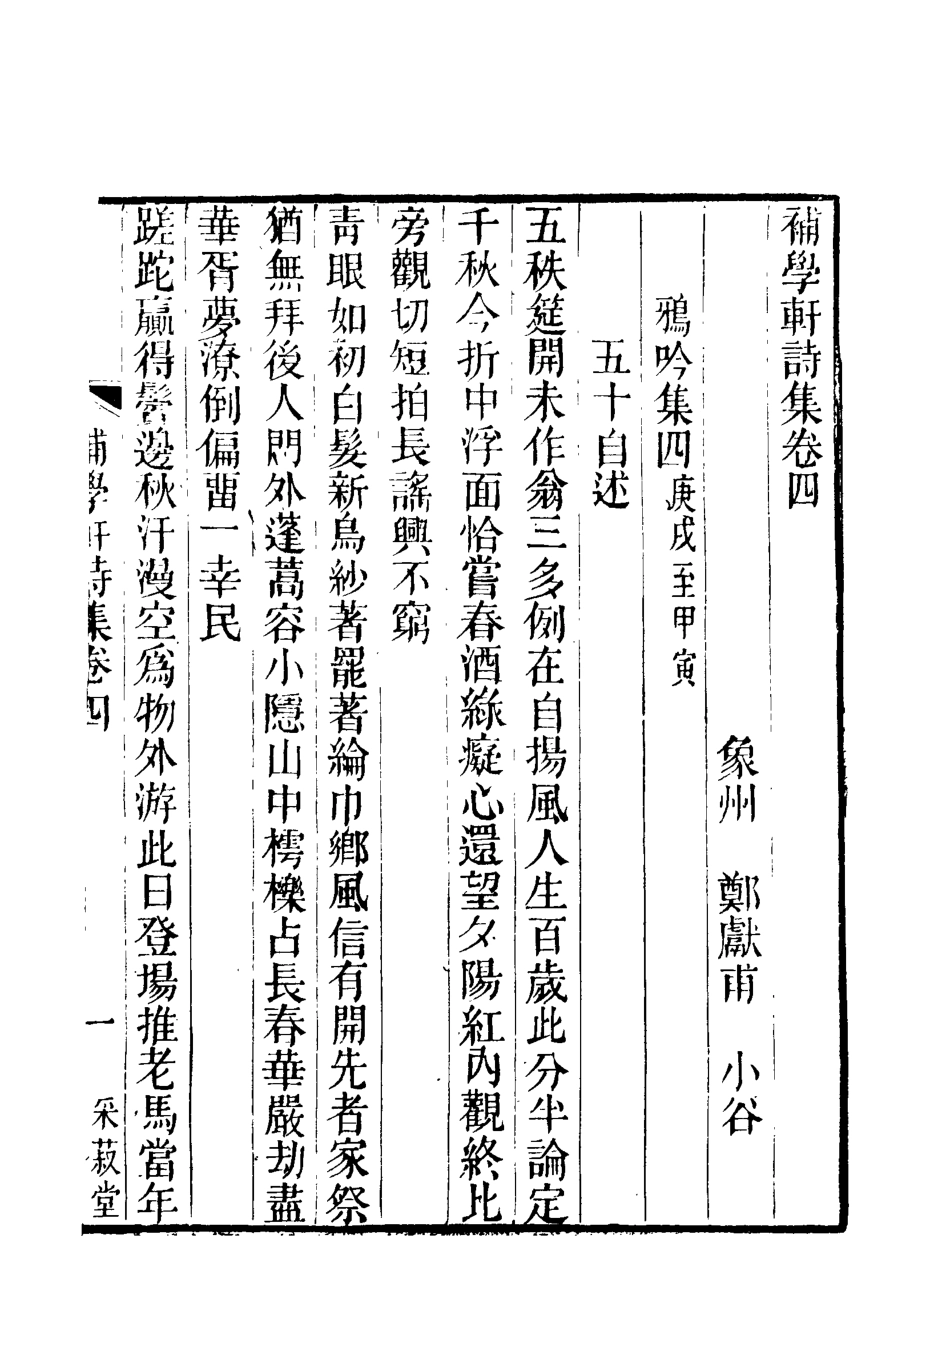 補學軒詩集卷四
象州　鄭獻甫　小谷
鴉吟集四庚戌至甲寅
五十自述
五秩筵開未作翁三多例在自揚風人生百歲此分半論定
千秋今折中浮面恰嘗春酒綠癡心還望夕陽紅內觀終比
旁觀切短拍長謠興不窮
靑眼如初白髮新烏紗著罷著綸巾鄉風信有開先者家祭
猶無拜後人門外蓬蒿容小隱山中樗櫟占長春華嚴劫盡
華胥夢潦倒偏畱一幸民
蹉跎贏得鬢邊秋汗漫空爲物外游此日登場推老馬當年
補學軒詩集卷四
一
采菽堂